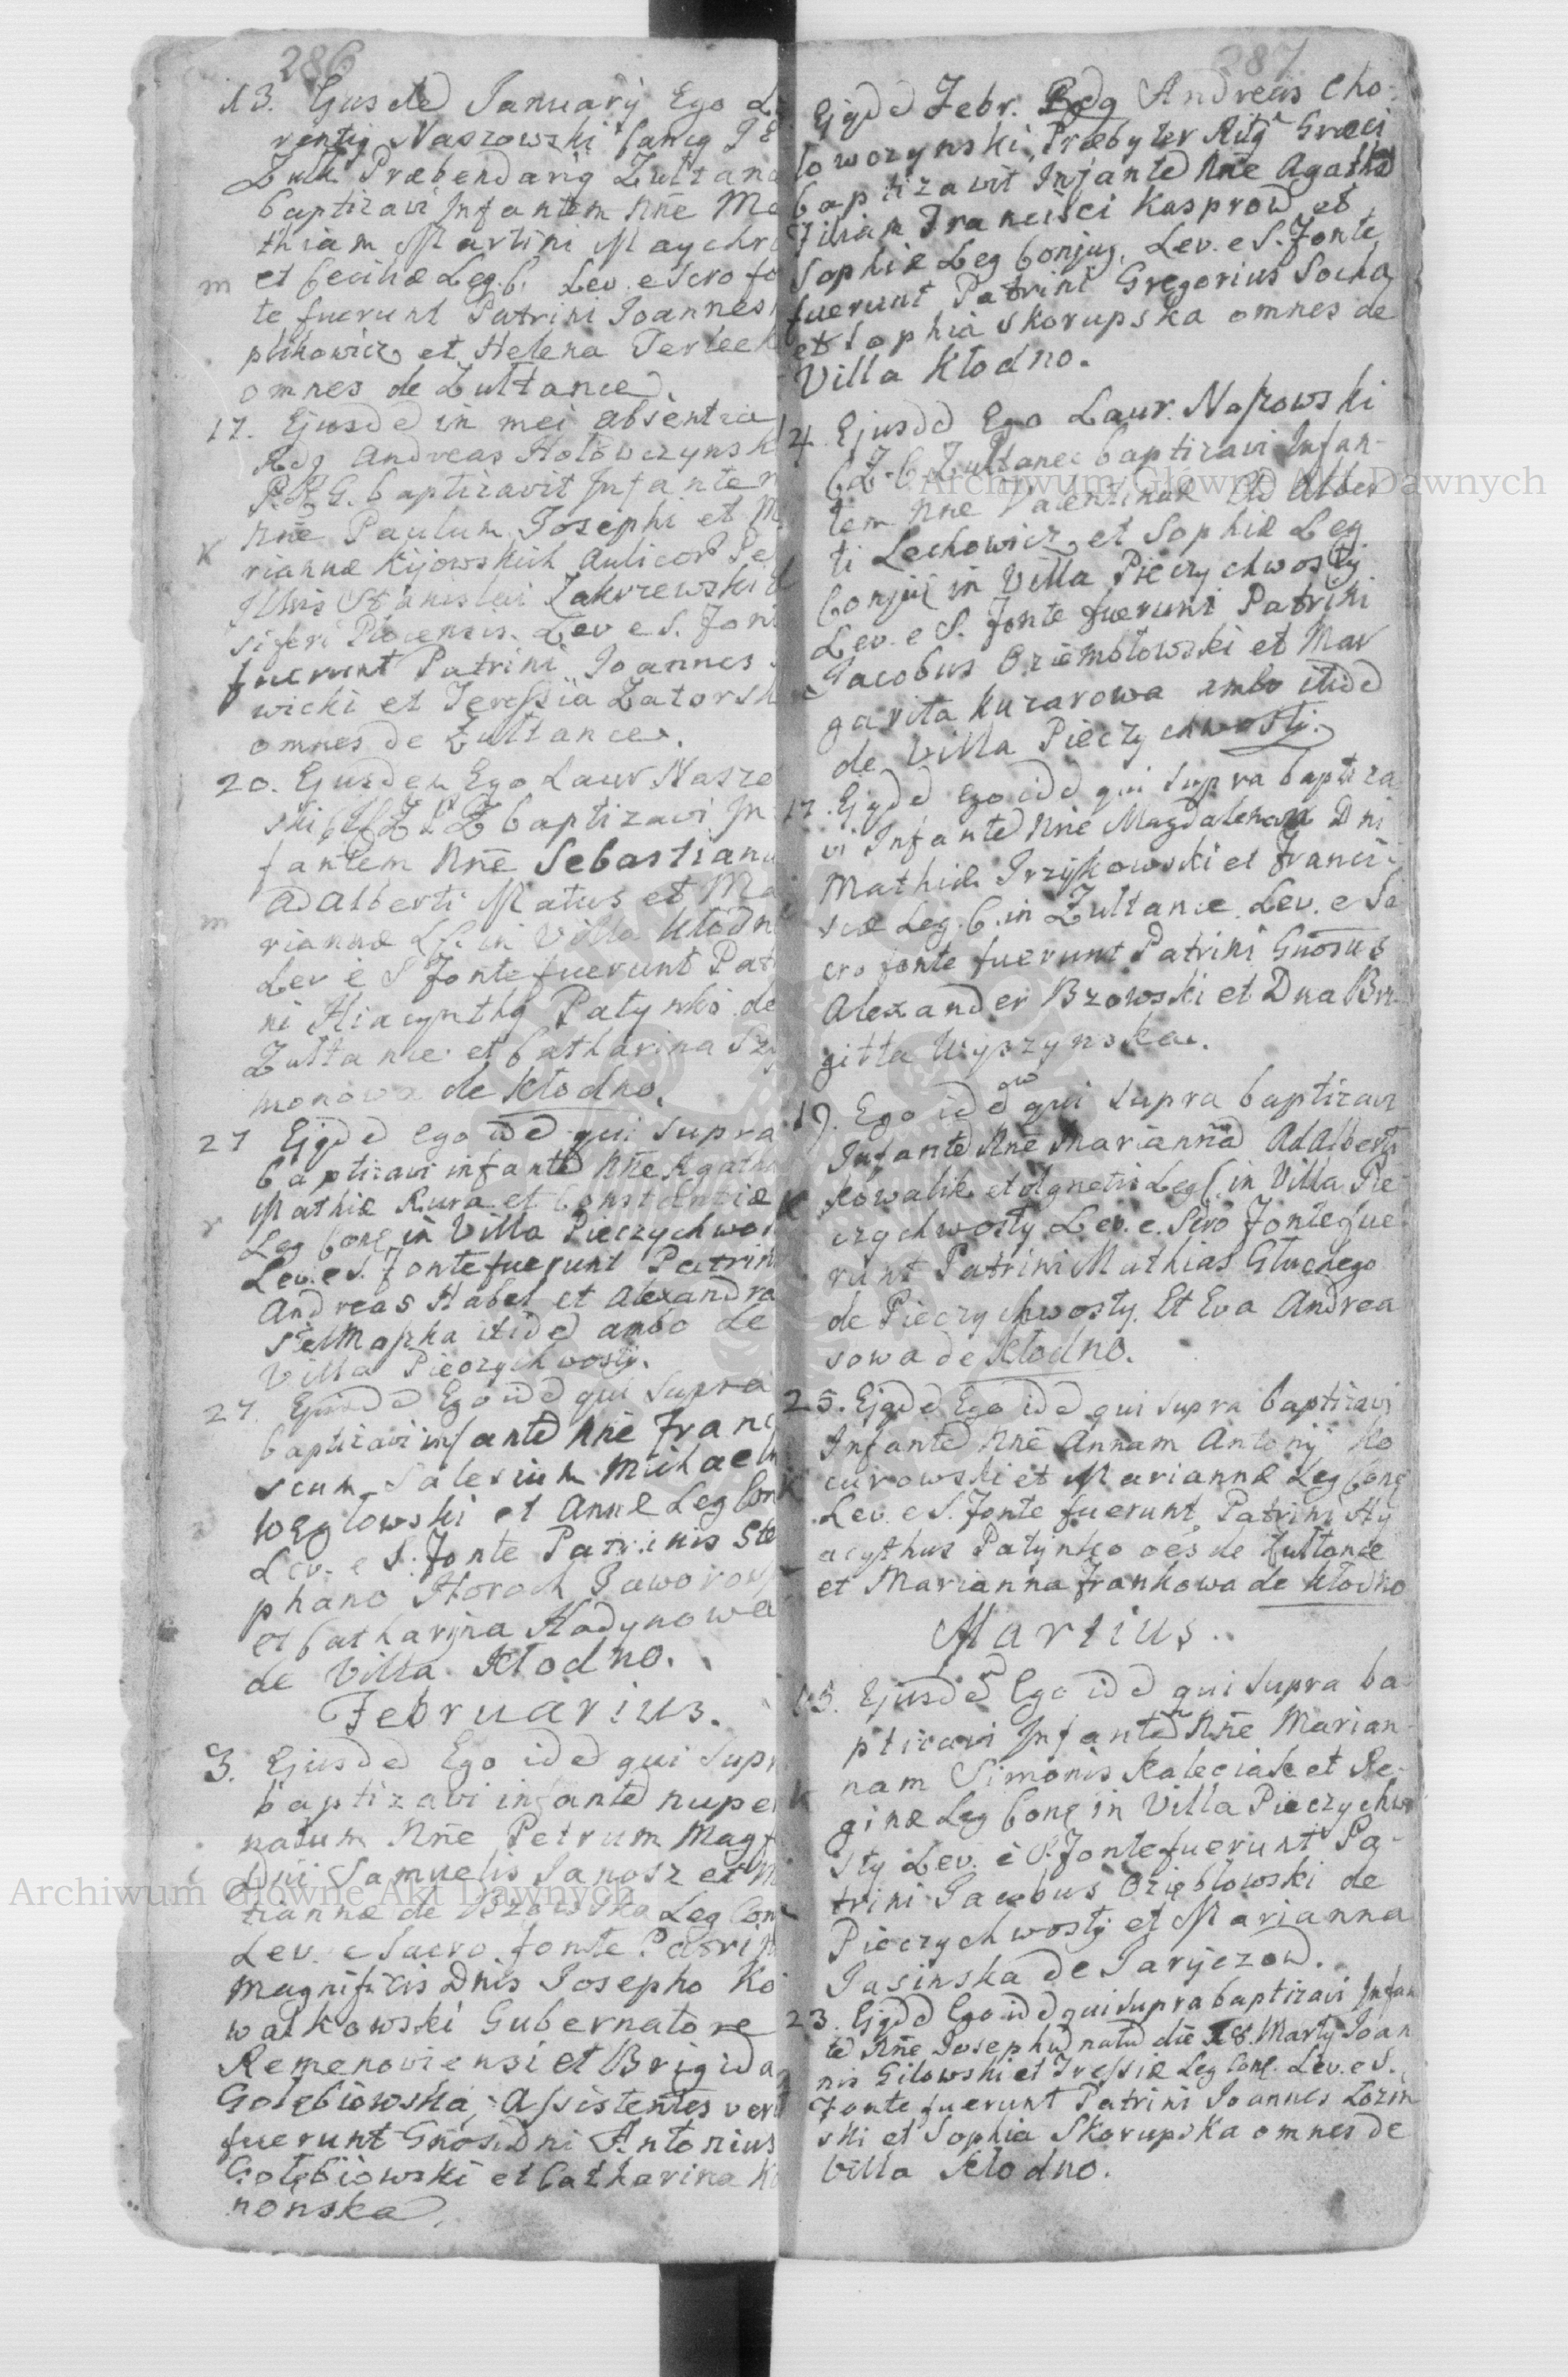 286
13. Ejusded January Ego La
rentig Naszowski Cancg
Zułt. Præbendarig Zułtanc
baptizavi Infantem Nne Ma
thiam Martini Maychr
m et Cecihæ Leg. C. Lev. e Scro fo
te fuerunt Patrini Joannes
plikowicz et Helena Terleck
omnes de Zułtance.
17. Ejusdd in mei absentia
Rdg Andreas Hołowczynsk
P.R.G. baptizavit Infantem
Nne Paulum Josephi et M
riannæ Kijowskich Aulicor
Illris Stanislai Zakrzewski
siferi Plocensis. Lev e S. Font
fuerunt Patrini Joannes
wicki et Teressia Zatorsk
omnes de Zułtance.
20. Ejusdem Ego Laur Naszo
ski baptizavi In
fantem Nne Sebastianu
Adalberti Matus et Ma
m rianne LC. in Villa Kłodn
Lev e S Fonte fuerunt Patr
ni Hiacynthg Patynko de
Zułtance et Catharina Szy
monowa de Kłodno.
27 Ejgdd ego idd qui supra
baptizavi infantd Nne Agatha
Mathiæ Kura et Constantiæ
r Leg Conf in Villa Pieczychwos
Lev. e S. fonte fuerunt Patrin
Andreas Habel et Alexandra
Stelmaszka itidd ambo de
Villa Pieczychwosty.
27. Ejusdd Ego idd qui supra
baptizavi infantd Nne Franci
scum Salesium Michaeli
Węglowski et Annæ Leg Con
Lev. e S. Fonte Patrinis Ste
phano Horoch Jaworow
et Catharina Hadynowa
de Villa Kłodno.
Februarius.
3. Ejusdd Ego idd qui Supr
baptizavi infantd nuper
natum Nne Petrum Magf
Dni Samuelis Janosz et M
riannæ de Bzowska Leg Con
Lev. e Sacro fonte Patrin
Magnificis Dnis Josepho Ko
walkowski Gubernatore
Remenoviensi et Brigida
Gołębiowska, Assistentes vero
fuerunt Gnosi Dni Antonius
Gołębiowski et Catharina Ko
nonska.
287
Ejgdd Febr. Rdg Andreas Cho-
łowczynski, Præbyter Ritg Græci
baptizavit Infantd Nne Agathd
Filiam Francisci Kasprow et
Sophiæ Leg Conjug. Lev. e S. Fonte
fuerunt Patrini Gregorius Socha
et Sophia Skorupska omnes de
Villa Kłodno.
4. Ejusdd Ego Laur. Naszowski
C.Z.C. Zułtanec baptizavi Infan-
tem Nne Valentinum Adalber
ti Lechowicz et Sophiæ Leg
Conjuc in Villa Pieczychwosty
Lev. e S. Fonte fuerunt Patrini
Jacobus Oziembłowski et Mar
garita Kuzarowa ambo itidd
de Villa Pieczychwosty.
17. Ejgdd ego idd qui supra baptiza
vi Infantd Nne Magdalenam Dni
Mathiæ Irzykowski et Franci-
scæ Leg. C. in Zułtance. Lev. e Sa
cro fonte fuerunt Patrini Gnosus
Alexander Bzowski et Dna Bri
gitta Wyszynska.
19. Ego idd qui supra baptizavi
Infantd Nne Mariannad Adalberti
Kowalik et Agnetis Leg C in Villa Pie
czychwosty Lev. e. Scro Fonte fue
runt Patrini Mathias Głuchego
de Pieczychwosty. Et Eva Andrea
sowa de Kłodno.
25. Ejgdd Ego idd qui supra baptizavi
Infantd Nne Annam Antonij Ko
curowski et Mariannæ Leg Conf
Lev. e S. Fonte fuerunt Patrini Hy
acythus Patynko oes de Zułtance
et Marianna Frankowa de Kłodno
Martius.
15. Ejusdd Ego idd qui supra ba
ptizavi Infantd Nne Marian
nam Simonis Kaleciak et Re-
ginæ Leg Conf in Villa Pieczychwo
sty Lev. e S. Fonte fuerunt Pa-
trini Jacobus Oziębłowski de
Pieczychwosty et Marianna
Jasinska de Jaryczow.
23. Ejgdd Ego idd qui supra baptizavi Infan
td Nne Josephud natud die 18. Martij Joan
nis Gilowski et Tressiæ Leg Conf. Lev. e S.
Fonte fuerunt Patrini Joannes Łozin
ski et Sophia Skorupska omnes de
Villa Kłodno.
Archiwum Główne Akt Dawnych
Archiwum Główne Akt Dawnych